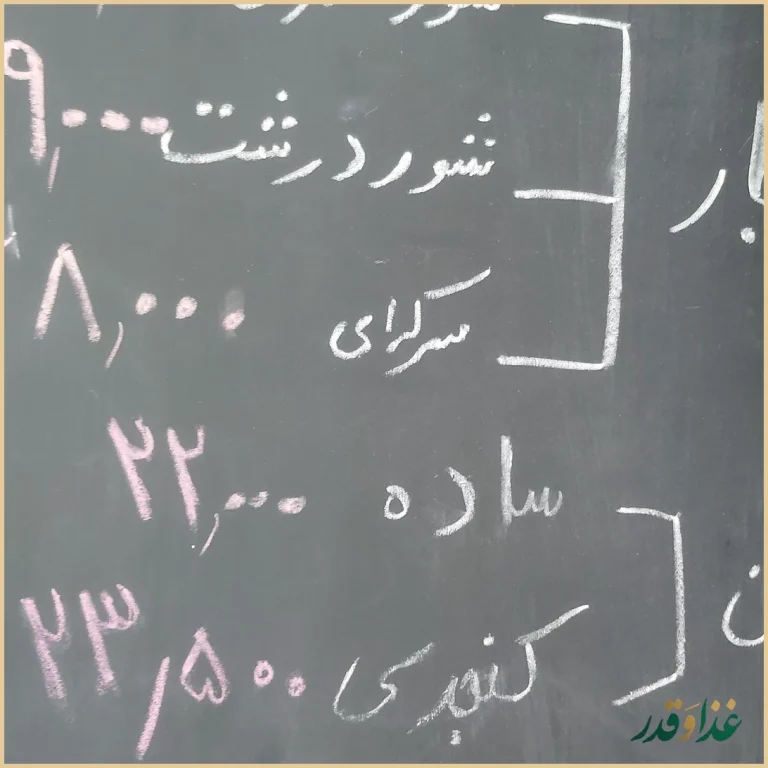 شور درشت ۹,۰۰۰
سرکه‌ای ۸,۰۰۰
ساده ۲۲,۰۰۰
کنجدی ۲۳,۵۰۰
غذا و قدر